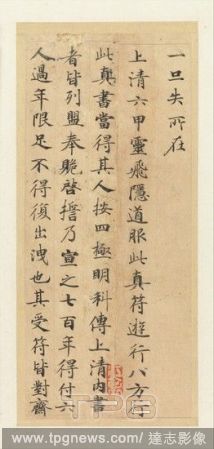 一旦失所在
上清六甲靈飛隱道服此真符遊行八方行
此真書當得其人按四極明科傳上清內書
者皆列盟奉贶啓誓乃宣之七百年得付六
人過年限足不得復出洩也其受符皆對齋
TPG
www.tpgnews.com/達志影像